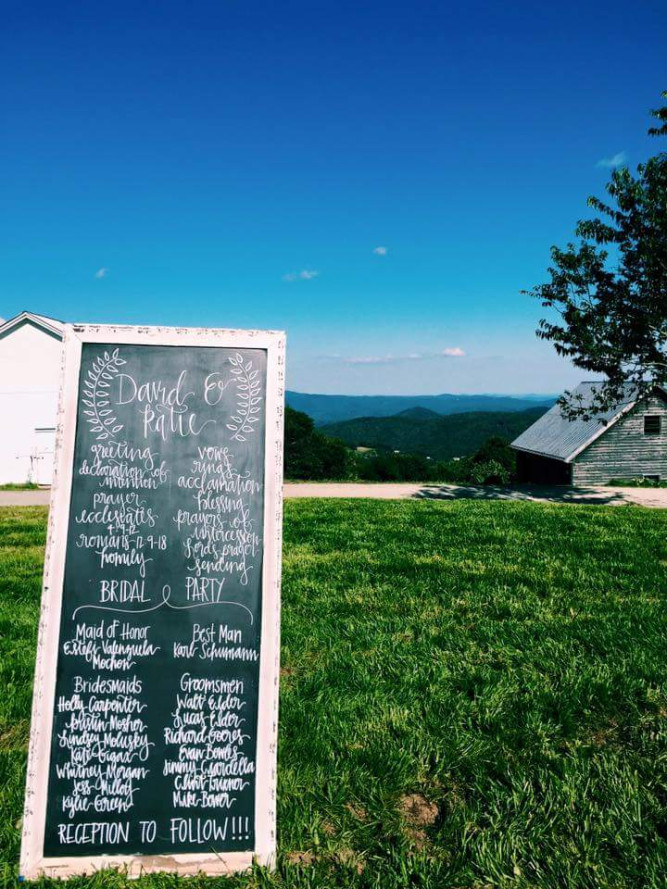 David &
Katie
greeting
declaration of
intention
prayer
ecclesiastes
4:9-12
romans 12:9-18
homily
vows
rings
acclamation
blessing
prayers of
intercession
lord's prayer
sending
BRIDAL PARTY
Maid of Honor
Mochon
Best Man
Karl Schumann
Bridesmaids
Holly Carpenter
Kristin Mosher
Lindsey
Kate
Whitney Morgan
Jess Milloy
Kylie Green
Groomsmen
Walt Elder
Lucas Elder
Richard
Evan Bowles
Jimmy Giardella
Clint
Mike Bower
RECEPTION TO FOLLOW!!!